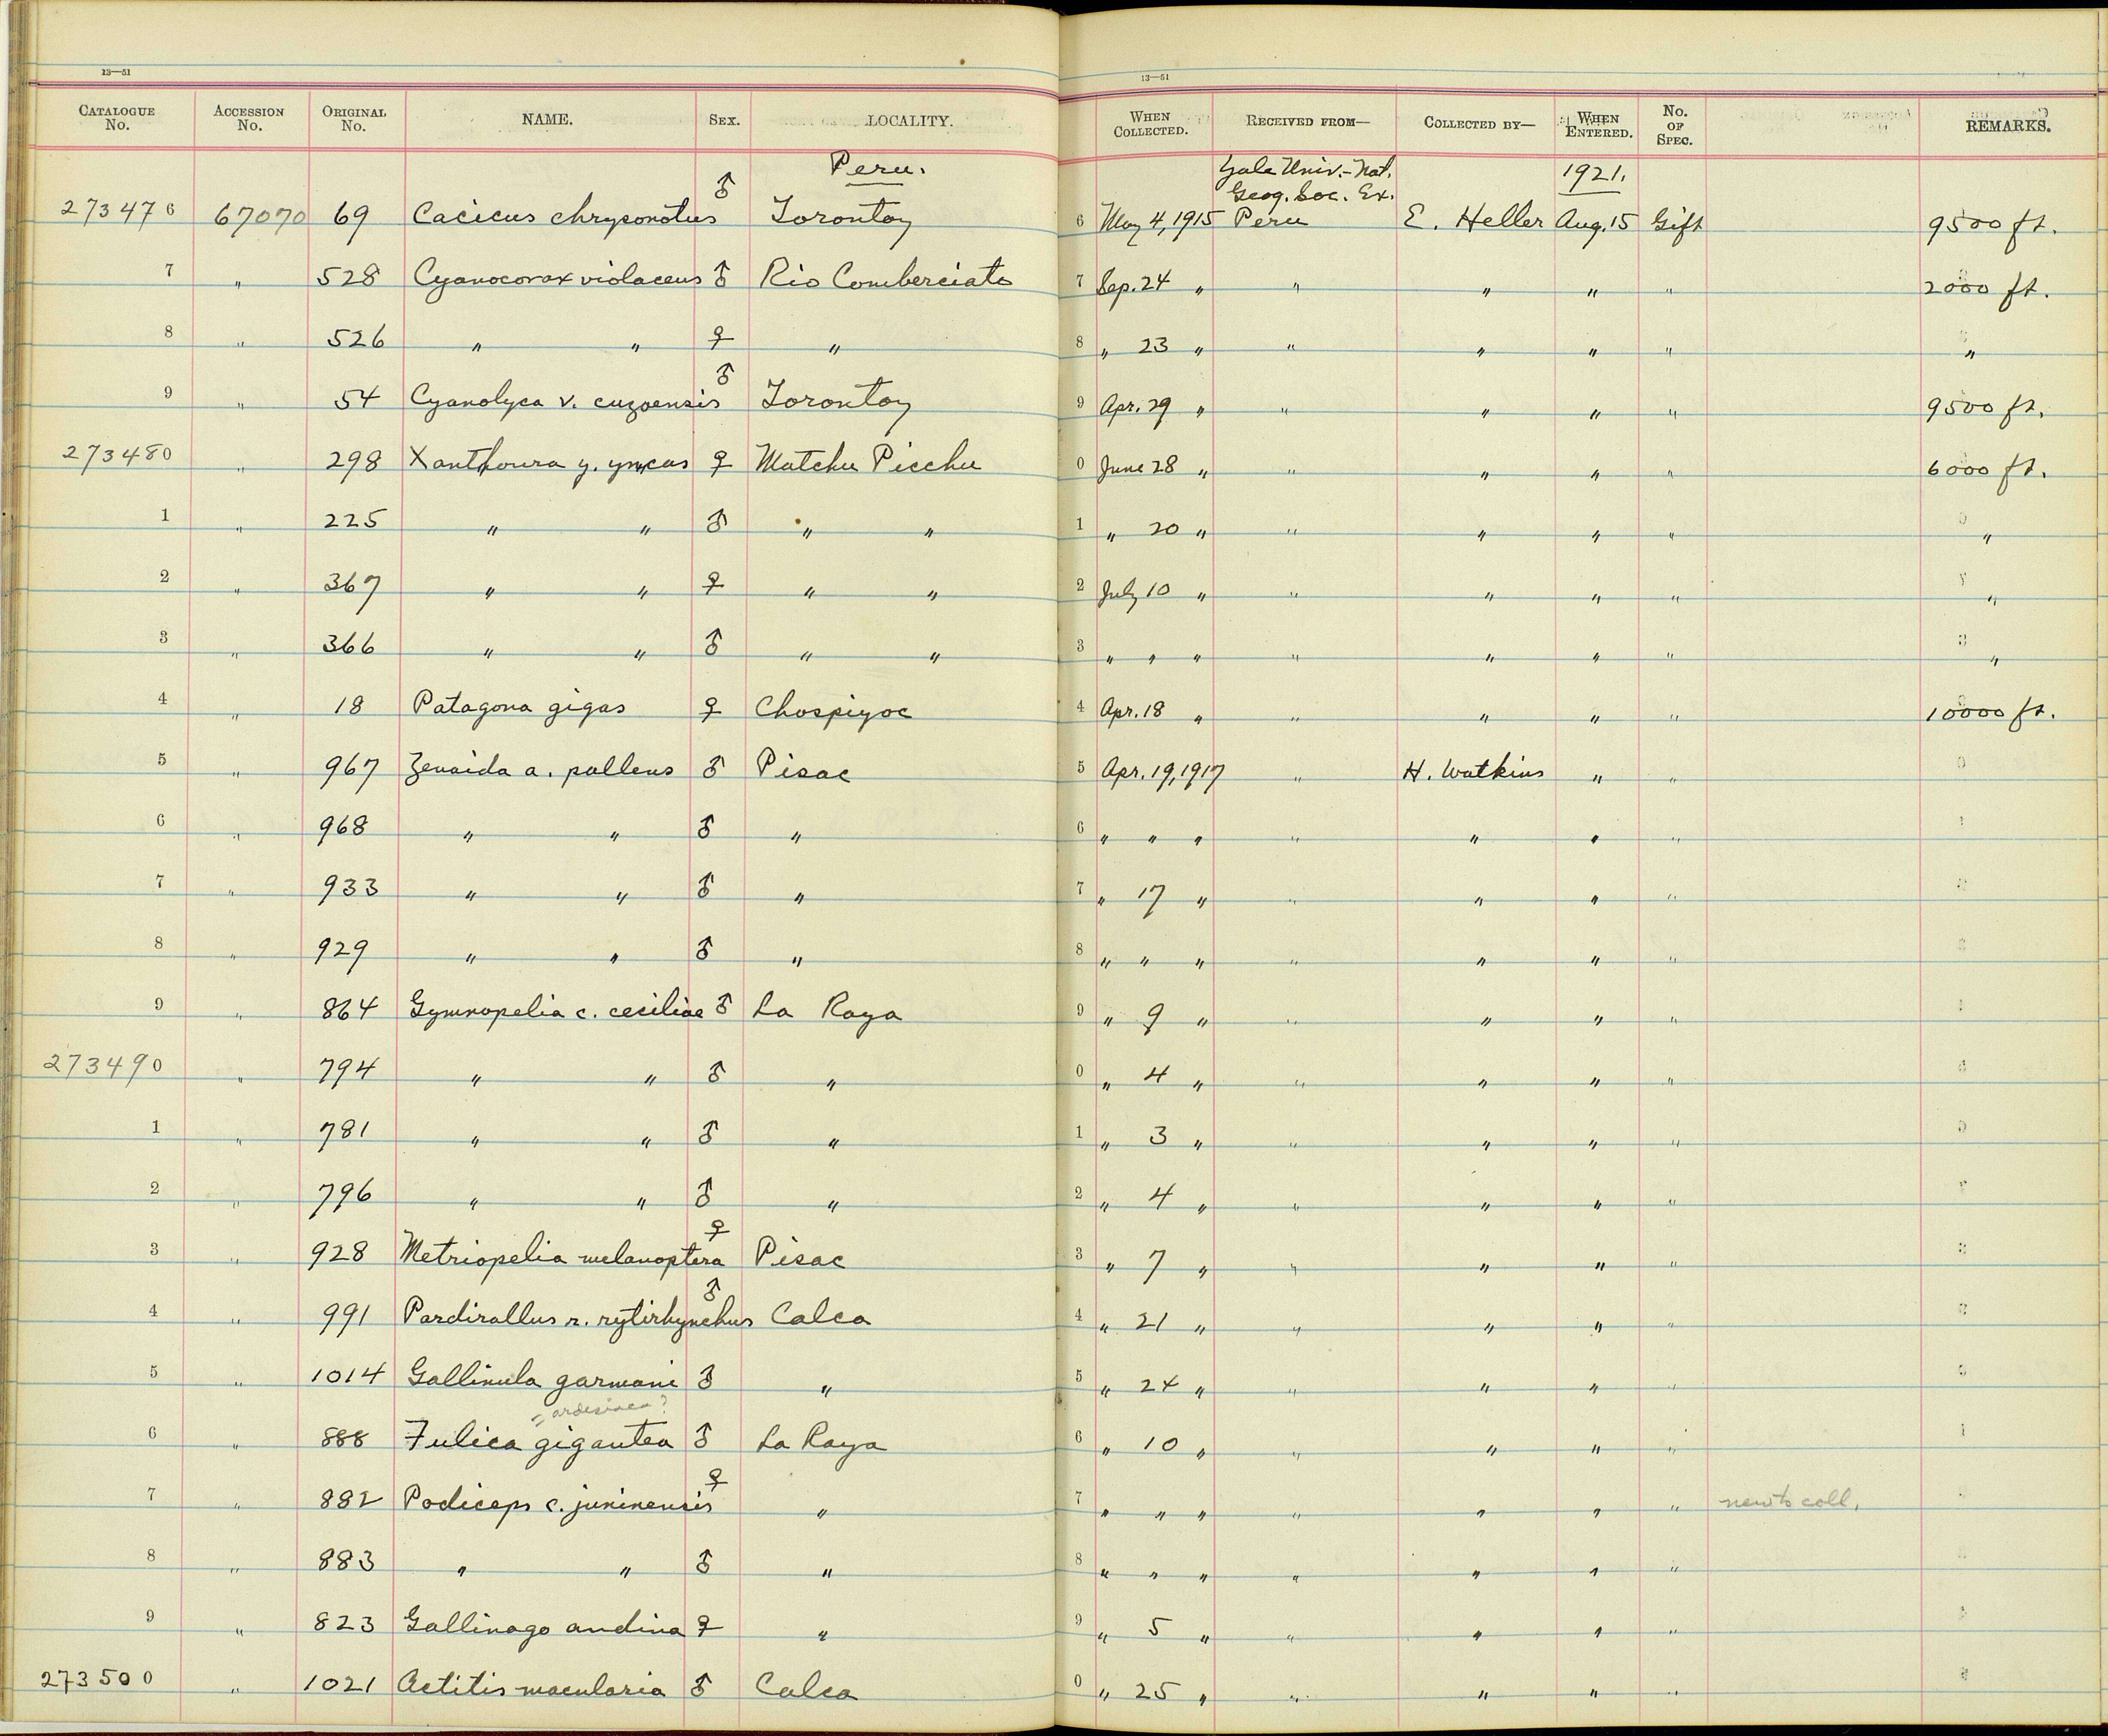 13—51 13—51
CATALOGUE No. ACCESSION No. ORIGINAL No. NAME. SEX. LOCALITY. WHEN COLLECTED. RECEIVED FROM— COLLECTED BY— WHEN ENTERED. No. OF SPEC. REMARKS.
Peru. Yale Univ.-Nat. 1921.
Geog. Soc. Ex.
273476 67070 69 Cacicus chrysonotus ♂ Torontoy 6 May 4, 1915 Peru E. Heller Aug. 15 Gift 9500 ft.
7 " 528 Cyanocorax violaceus ♂ Rio Comberciato 7 Sep. 24 " " " " " 2000 ft.
8 " 526 " " ♀ " 8 " 23 " " " " " "
9 " 54 Cyanolyca v. cuzoensis ♂ Torontoy 9 Apr. 29 " " " " " 9500 ft.
273480 " 298 Xanthoura y. yncas ♀ Matchu Picchu 0 June 28 " " " " " 6000 ft.
1 " 225 " " ♂ " " 1 " 20 " " " " " "
2 " 367 " " ♀ " " 2 July 10 " " " " " "
3 " 366 " " ♂ " " 3 " " " " " " " "
4 " 18 Patagona gigas ♀ Chospiyoc 4 Apr. 18 " " " " " 10000 ft.
5 " 967 Zenaida a. pallens ♂ Pisac 5 Apr. 19, 1917 " H. Watkins " "
6 " 968 " " ♂ " 6 " " " " " " "
7 " 933 " " ♂ " 7 " 17 " " " " "
8 " 929 " " ♂ " 8 " " " " " " "
9 " 864 Gymnopelia c. ceciliae ♂ La Raya 9 " 9 " " " " "
273490 " 794 " " ♂ " 0 " 4 " " " " "
1 " 781 " " ♂ " 1 " 3 " " " " "
2 " 796 " " ♂ " 2 " 4 " " " " "
3 " 928 Metriopelia melanoptera ♀ Pisac 3 " 7 " " " " "
4 " 991 Pardirallus r. rytirhynchus ♂ Calca 4 " 21 " " " " "
5 " 1014 Gallinula garmani ♂ " 5 " 24 " " " " "
ardesiaca?
6 " 888 Fulica gigantea ♂ La Raya 6 " 10 " " " " "
7 " 882 Podiceps c. juninensis ♀ " 7 " " " " " " " new to coll.
8 " 883 " " ♂ " 8 " " " " " " "
9 " 823 Gallinago andina ♀ " 9 " 5 " " " " "
273500 " 1021 Actitis macularia ♂ Calca 0 " 25 " " " " "